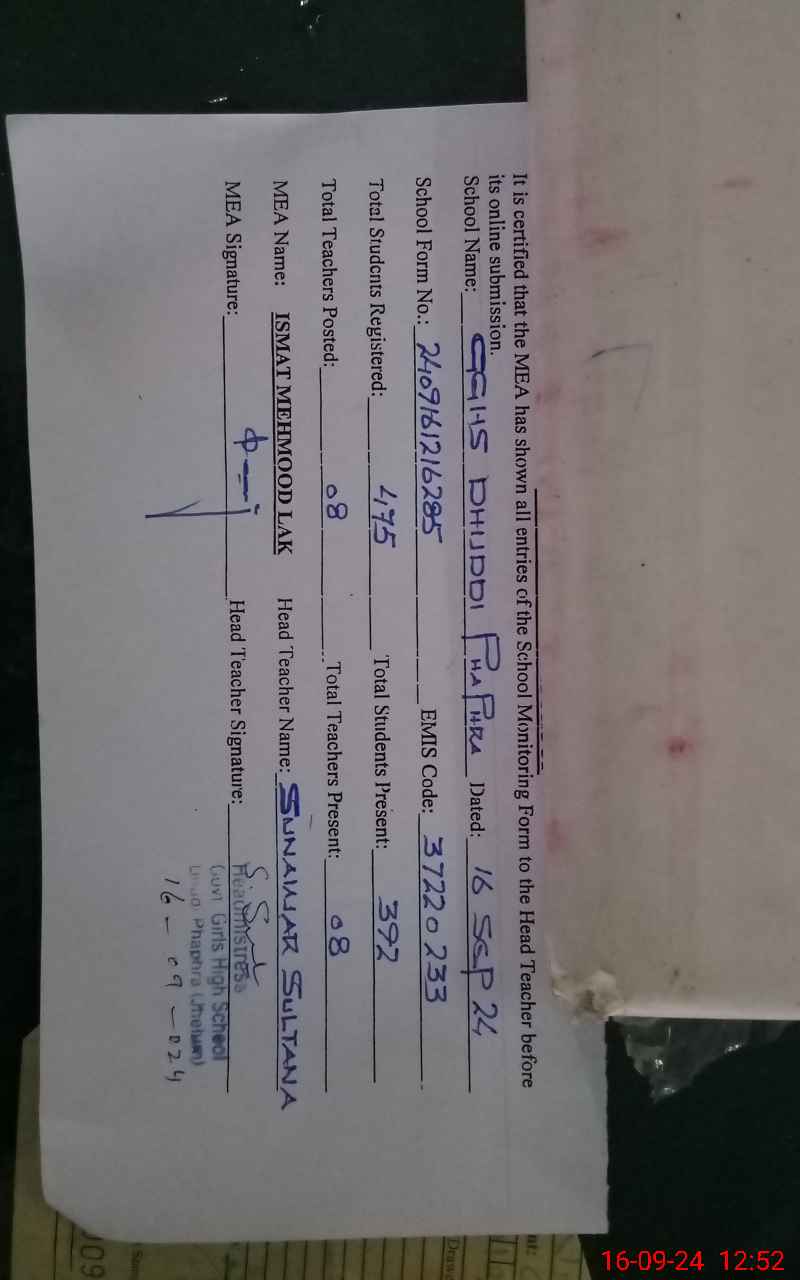 It is certified that the MEA has shown all entries of the School Monitoring Form to the Head Teacher before
its online submission.
School Name: GGHS DHUDDI PHAPHRA Dated: 16 SEP 24
School Form No.: 2409161216285 EMIS Code: 37220233
Total Students Registered: 475 Total Students Present: 392
Total Teachers Posted: 08 Total Teachers Present: 08
MEA Name: ISMAT MEHMOOD LAK Head Teacher Name: SUNAWAR SULTANA
MEA Signature: Head Teacher Signature:
Headmistress
Govt Girls High School
Phaphra (Jhelum)
16-09-024
16-09-24 12:52